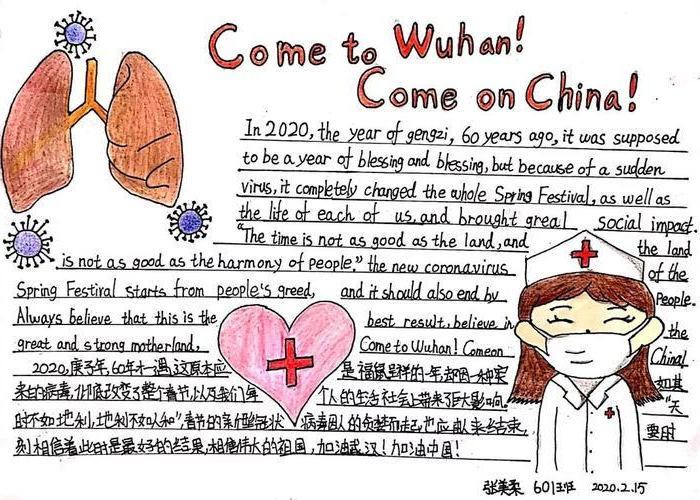 Come to Wuhan!
Come on China!
In 2020, the year of gengzi, 60 years ago, it was supposed
to be a year of blessing and blessing, but because of a sudden
virus, it completely changed the whole Spring Festival, as well as
the life of each of us, and brought greal social impact.
"The time is not as good as the land, and the land
is not as good as the harmony of people." the new coronavirus of the
Spring Festival starts from people's greed, and it should also end by People.
Always believe that this is the best result, believe in the
great and strong motherland, Come to Wuhan! Comeon China!
2020,庚子年,60年一遇,这原本应是福鼠呈祥的一年,却因一种突 如其
来的病毒,彻底改变了整个春节,以及我们每个人的生活社会上带来了巨大影响. "天
时不如地利,地利不如人和",春节的新型冠状病毒因人的贪婪而起,也应由人来结束, 要时
刻相信着此时是最好的结果,相信伟大的祖国,加油武汉!加油中国!
张美柔 601班 2020.2.15